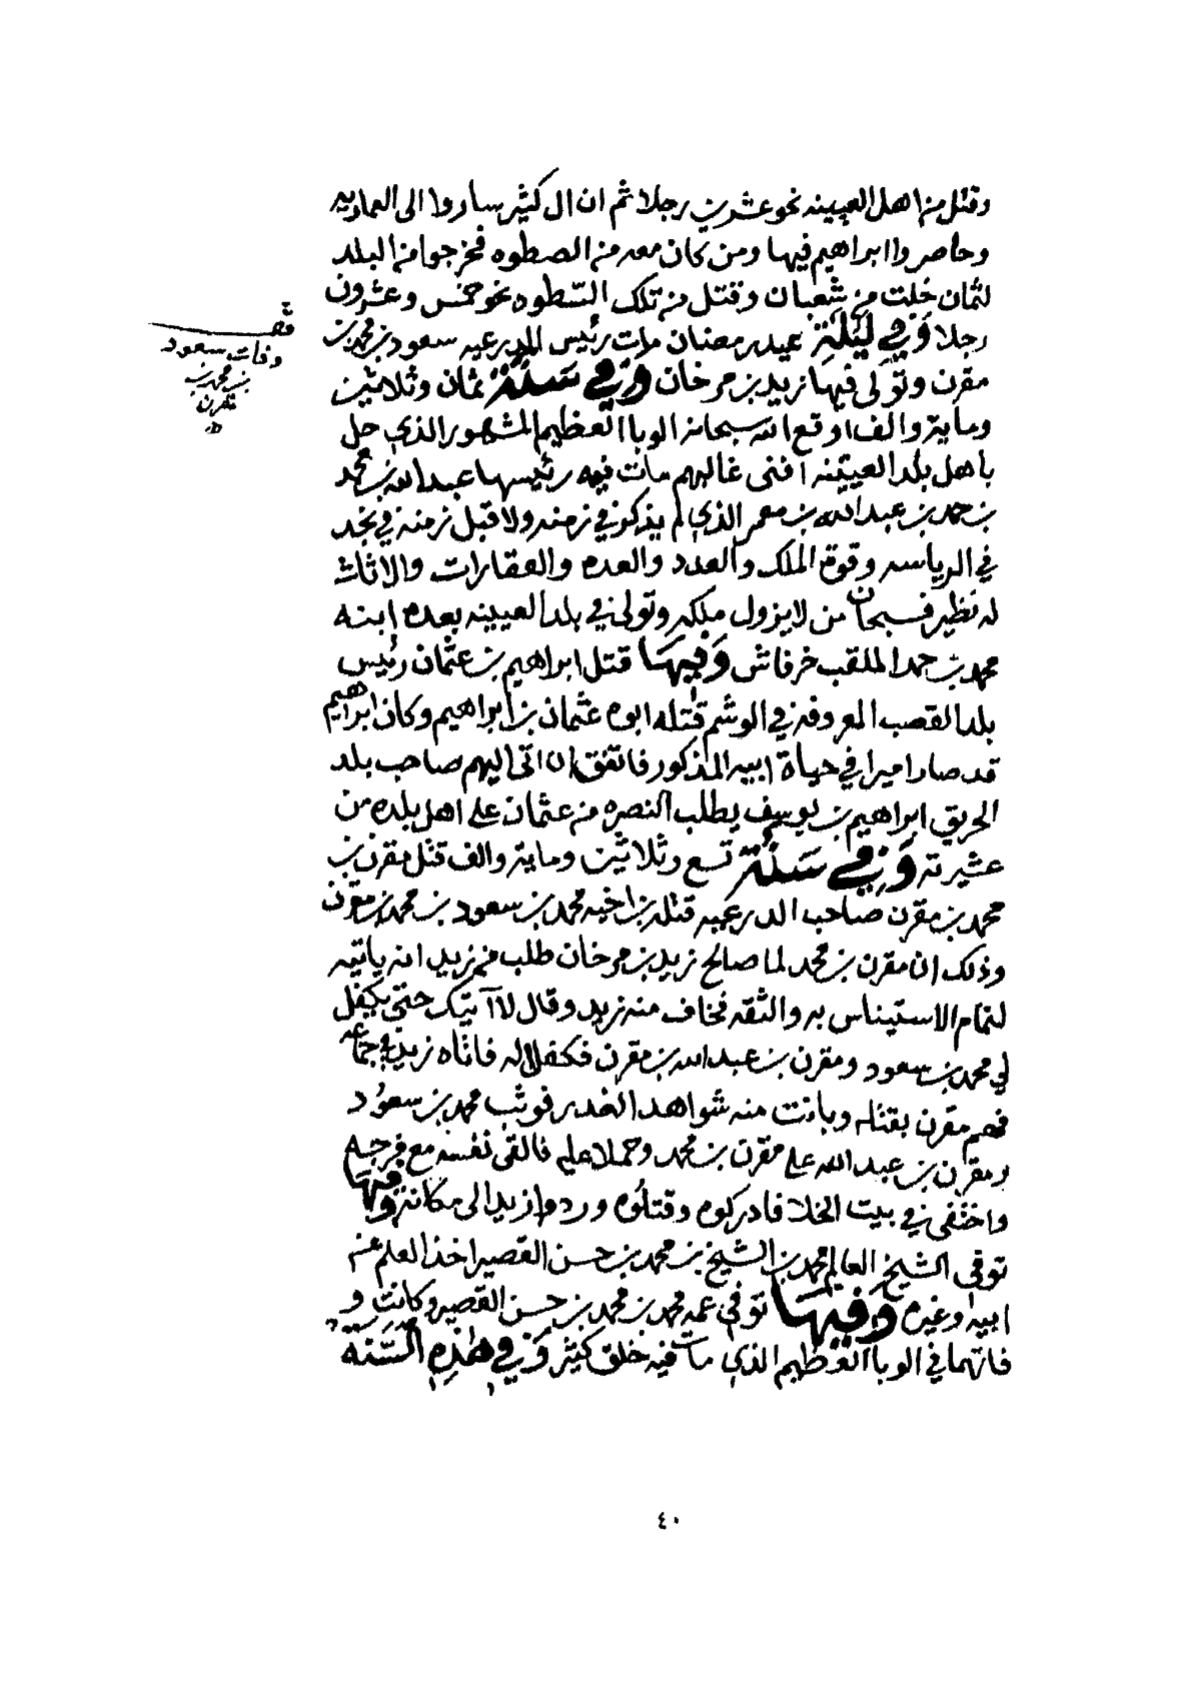 وقتل من اهل العيينه نحو عشرين رجلا ثم ان ال كثير ساروا الى العماريه
وحاصروا ابراهيم فيها ومن كان معه من الصطوه فخرجوا من البلد
لثمان خلت من شعبان وقتل من تلك السّطوه نحو خمس وعشرون
رجلا وَفي لَيْلَةِ عيد رمضان مات رئيس الدرعيه سعود بن محمد بن
مقرن وتولى فيها زيد بن مرخان وَفي سَنَة ثمان وثلاثين
وماية والف اوقع الله سبحانه الوبا العظيم المشهور الذي حل
باهل بلد العيينه افنى غالبهم مات فيه رئيسها عبد الله بن محمد
بن حمد بن عبد الله بن معمر الذي لم يذكر في زمنه ولا قبل زمنه في نجد
في الرياسه وقوة الملك والعدد والعده والعقارات والاثاث
له نظير فسبحان من لا يزول ملكه وتولى في بلد العيينه بعده ابنه
محمد بن حمد الملقب خرفاش وَفيهَا قتل ابراهيم بن عثمان رئيس
بلد القصب المعروفه في الوشم قتله ابوه عثمان بن ابراهيم وكان ابراهيم
قد صار اميرا في حياة ابيه المذكور فاتفق ان اتى اليهم صاحب بلد
الحريق ابراهيم بن يوسف يطلب النصره من عثمان على اهل بلده من
عشيرته وَفي سَنَة تسع وثلاثين وماية والف قتل مقرن بن
محمد بن مقرن صاحب الدرعيه قتله بن اخيه محمد بن سعود بن محمد بن مقرن
وذلك ان مقرن بن محمد لما صالح زيد بن مرخان طلب من زيد انه ياتيه
لتمام الاستيناس به والثقه فخاف منه زيد وقال لا آتيك حتى يكفل
لي محمد بن سعود ومقرن بن عبد الله بن مقرن فكفلا له فاتاه زيد في جماعه
فهم مقرن بقتله وبانت منه شواهد الغدر فوثب محمد بن سعود
ومقرن بن عبد الله على مقرن بن محمد وحملا عليه فالقى نفسه مع فرجه
واختفى في بيت الخلا فادركوه وقتلوه وردوا زيد الى مكانه وفيها
توفي الشيخ العالم محمد بن الشيخ بن محمد بن حسن القصير اخذ العلم عن
ابيه وغيره وَفيهَا توفي عمه محمد بن محمد بن حسن القصير وكانت و
فاتهما في الوبا العظيم الذي مات فيه خلق كثير وَفي هٰذِهِ السَّنَه
قف
وفات سعود
بن محمد بن
مقرن
٤٠